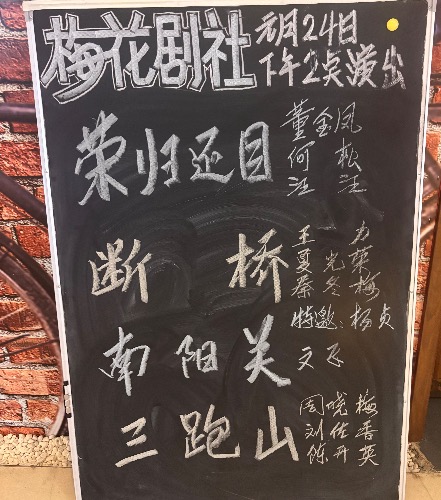 梅花剧社
元月24日
下午2点演出
荣归还目
董金凤
何松
汪汪
断桥
王力
夏光荣
蔡冬梅
特邀:杨贞
南阳关
文飞
三跑山
周晓梅
刘佐香
陈丹英